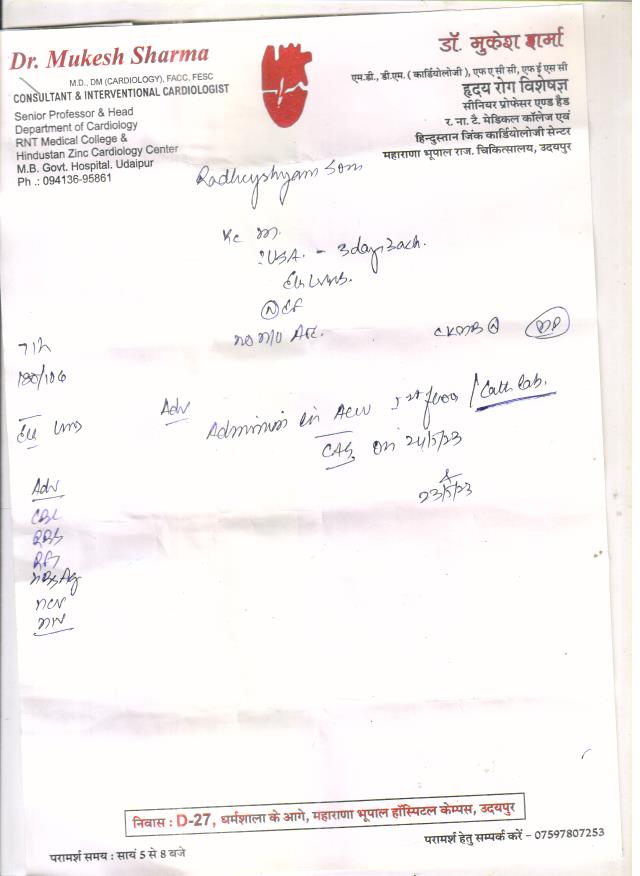 Dr. Mukesh Sharma
M.D., DM (CARDIOLOGY), FACC, FESC
CONSULTANT & INTERVENTIONAL CARDIOLOGIST
Senior Professor & Head
Department of Cardiology
RNT Medical College &
Hindustan Zinc Cardiology Center
M.B. Govt. Hospital. Udaipur
Ph .: 094136-95861
डॉ. मुकेश शर्मा
एम.डी., डी.एम. ( कार्डियोलोजी ), एफ ए सी सी, एफ ई एस सी
हृदय रोग विशेषज्ञ
सीनियर प्रोफेसर एण्ड हैड
र. ना. टै. मेडिकल कॉलेज एवं
हिन्दुस्तान जिंक कार्डियोलोजी सेन्टर
महाराणा भूपाल राज. चिकित्सालय, उदयपुर
Radheyshyam Soni
USA. - 3 day back.
CKMB
180/106
Adv
in 1st floor / Cath lab.
CAG on 24/5/23
23/5/23
Adv
CBC
RBS
RFT
HBsAg
HCV
HIV
निवास : D-27, धर्मशाला के आगे, महाराणा भूपाल हॉस्पिटल केम्पस, उदयपुर
परामर्श समय : सायं 5 से 8 बजे
परामर्श हेतु सम्पर्क करें - 07597807253